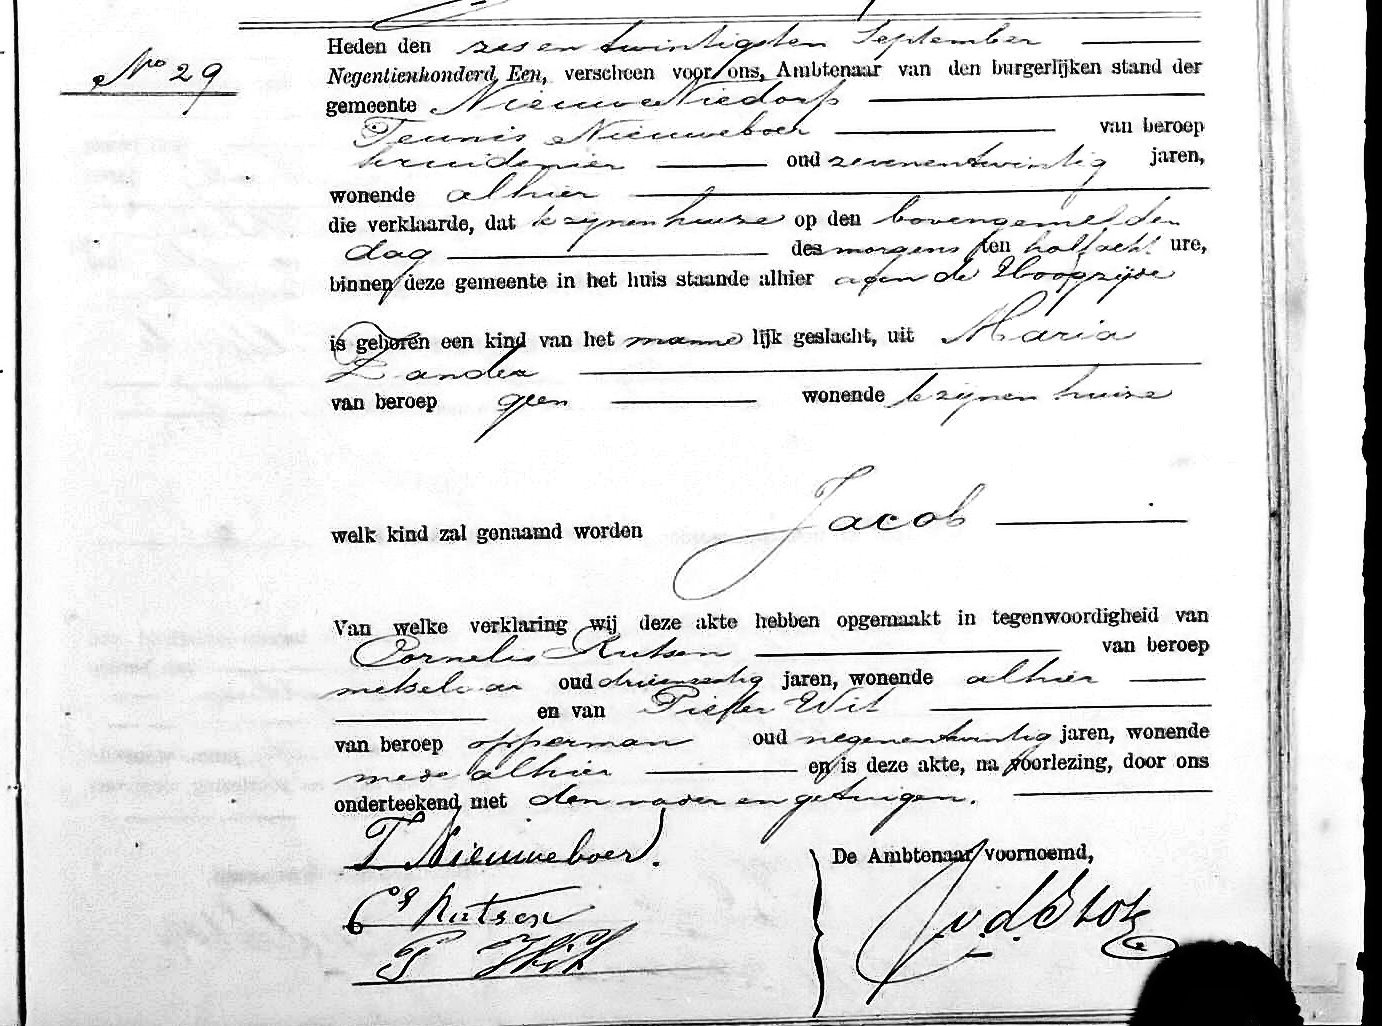 No 29
Heden den zes en twintigsten September
Negentienhonderd Een, verscheen voor ons, Ambtenaar van den burgerlijken stand der
gemeente Nieuwe Niedorp
Teunis Nieuweboer van beroep
kruidenier oud zevenentwintig jaren,
wonende alhier
die verklaarde, dat te zijnen huize op den bovengemelden
dag des morgens ten half acht ure,
binnen deze gemeente in het huis staande alhier aan de Hoogzijde
is geboren een kind van het manne lijk geslacht, uit Maria
Zander
van beroep geen wonende te zijnen huize
welk kind zal genaamd worden Jacob
Van welke verklaring wij deze akte hebben opgemaakt in tegenwoordigheid van
Cornelis Rutsen van beroep
metselaar oud drieenzestig jaren, wonende alhier
en van Pieter Wit
van beroep opperman oud negenentwintig jaren, wonende
mede alhier en is deze akte, na voorlezing, door ons
onderteekend met den vader en getuigen.
T Nieuweboer.
De Ambtenaar voornoemd,
Cs Rutsen
P Wit